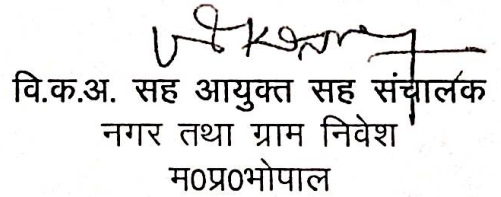 वि.क.अ. सह आयुक्त सह संचालक
नगर तथा ग्राम निवेश
म0प्र0भोपाल